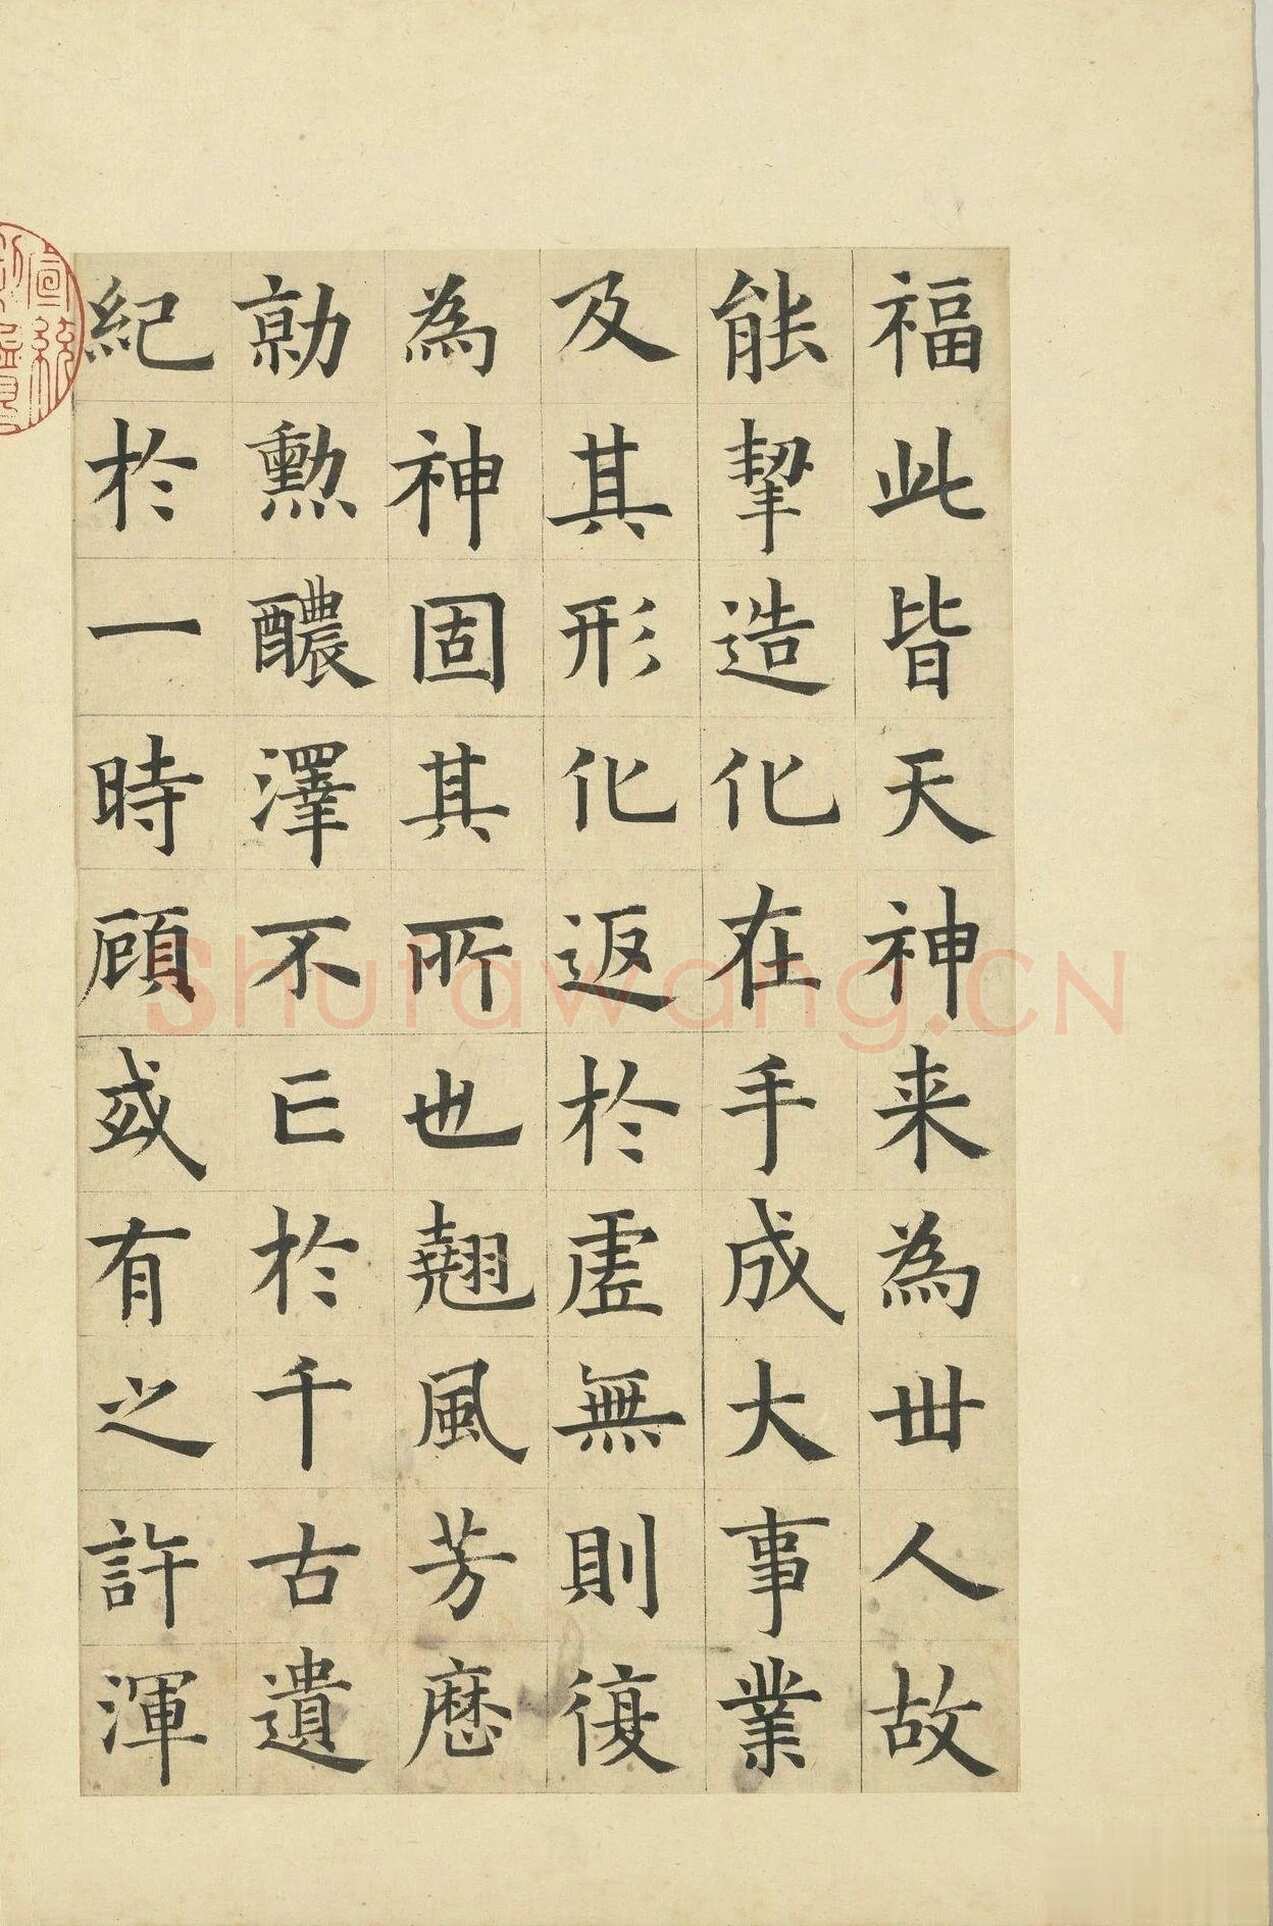 福此皆天神来為丗人故
能挈造化在手成大事業
及其形化返於虛無則復
為神固其所也翹風芳歷
勍勲醲澤不亡於千古遺
紀於一時顧或有之許渾
宣統
Shufawang.CN